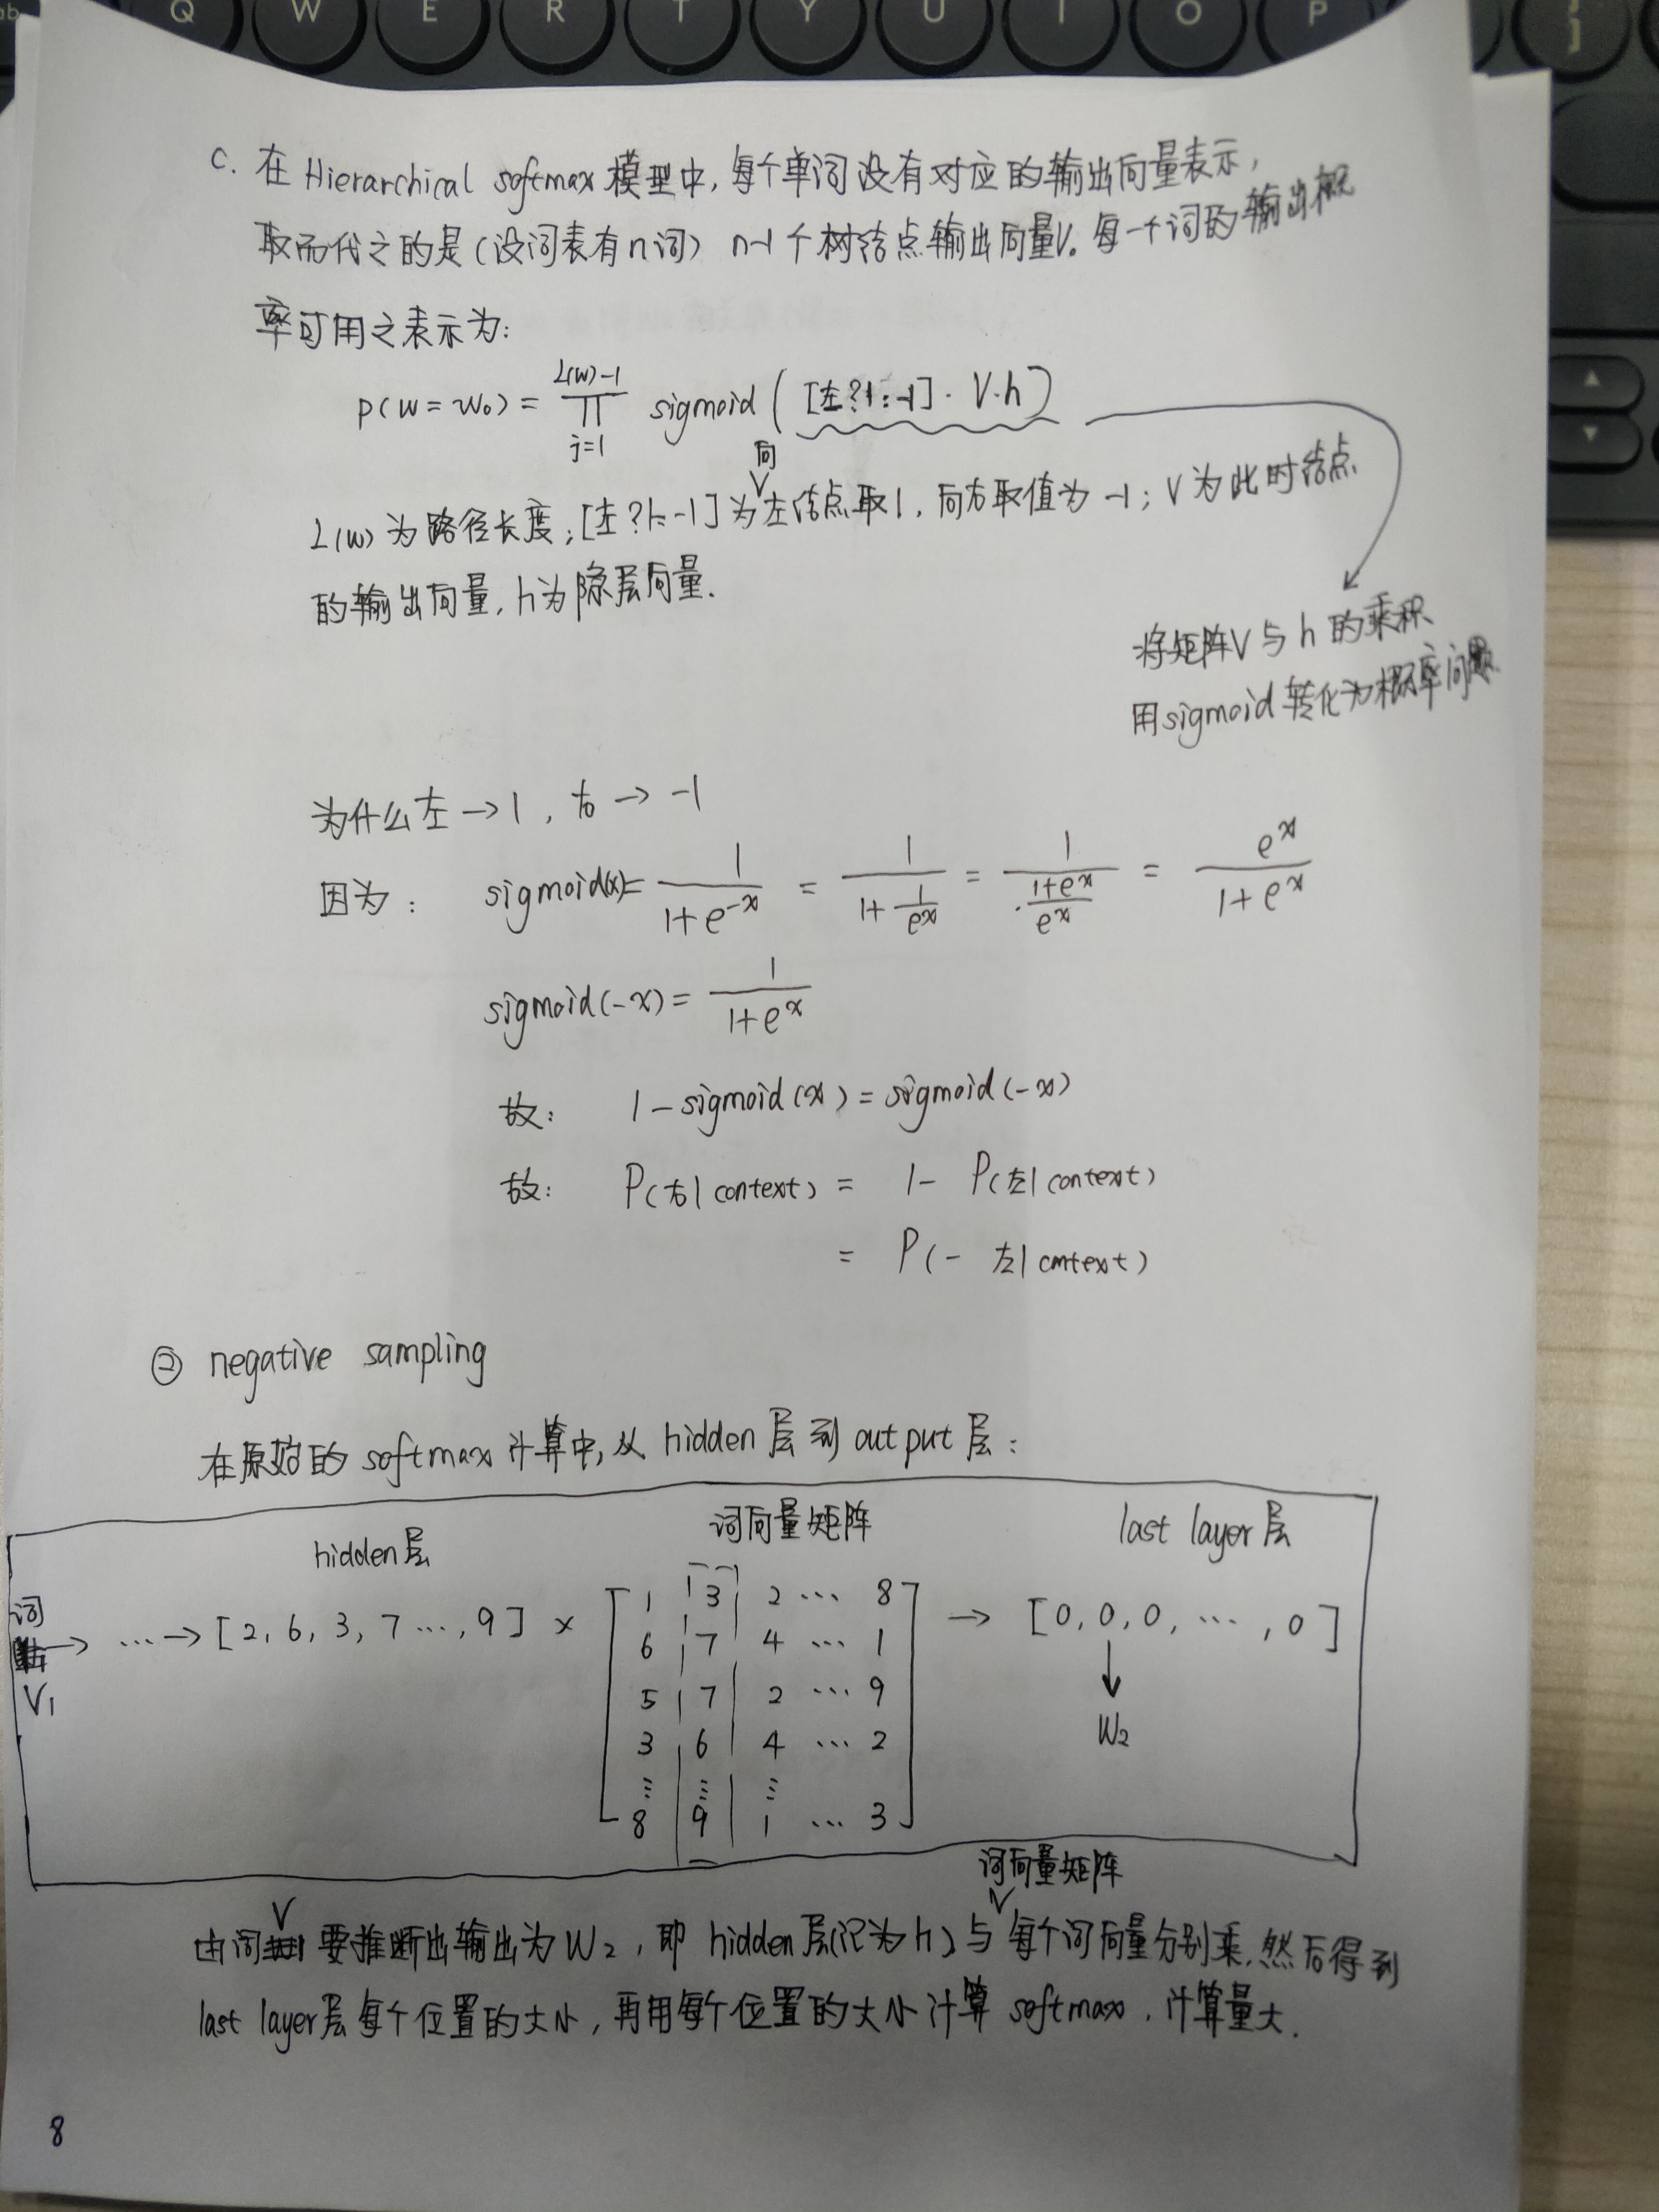 Q W E R T Y U I O P
c. 在 Hierarchical softmax 模型中,每个单词没有对应的输出向量表示,
取而代之的是(设词表有n词) n-1个树结点输出向量V。每一个词的输出概
率可用之表示为:
p(w=w₀) = ∏_{j=1}^{L(w)-1} sigmoid([左?1:-1]·V·h)
L(w)为路径长度;[左?1:-1]为向左结点取1,向右取值为-1;V为此时结点
的输出向量,h为隐层向量.
将矩阵V与h的乘积
用sigmoid转化为概率问题.
为什么左→1,右→-1
因为: sigmoid(x)= 1/(1+e^{-x}) = 1/(1+1/e^x) = 1/((1+e^x)/e^x) = e^x/(1+e^x)
sigmoid(-x)= 1/(1+e^x)
故: 1-sigmoid(x)=sigmoid(-x)
故: P(右|context) = 1- P(左|context)
= P(- 左|context)
② negative sampling
在原始的softmax计算中,从hidden层到output层:
hidden层 词向量矩阵 last layer层
词V₁ → ⋯→[2,6,3,7⋯,9] × → [0,0,0,⋯,0]
1 3 2 ⋯ 8
6 7 4 ⋯ 1
5 7 2 ⋯ 9
3 6 4 ⋯ 2
⋮ ⋮ ⋮
8 9 1 ⋯ 3
↓
W₂
由词V要推断出输出为W₂,即hidden层(记为h)与词向量矩阵每个词向量分别乘,然后得到
last layer层每个位置的大小,再用每个位置的大小计算softmax,计算量大.
8